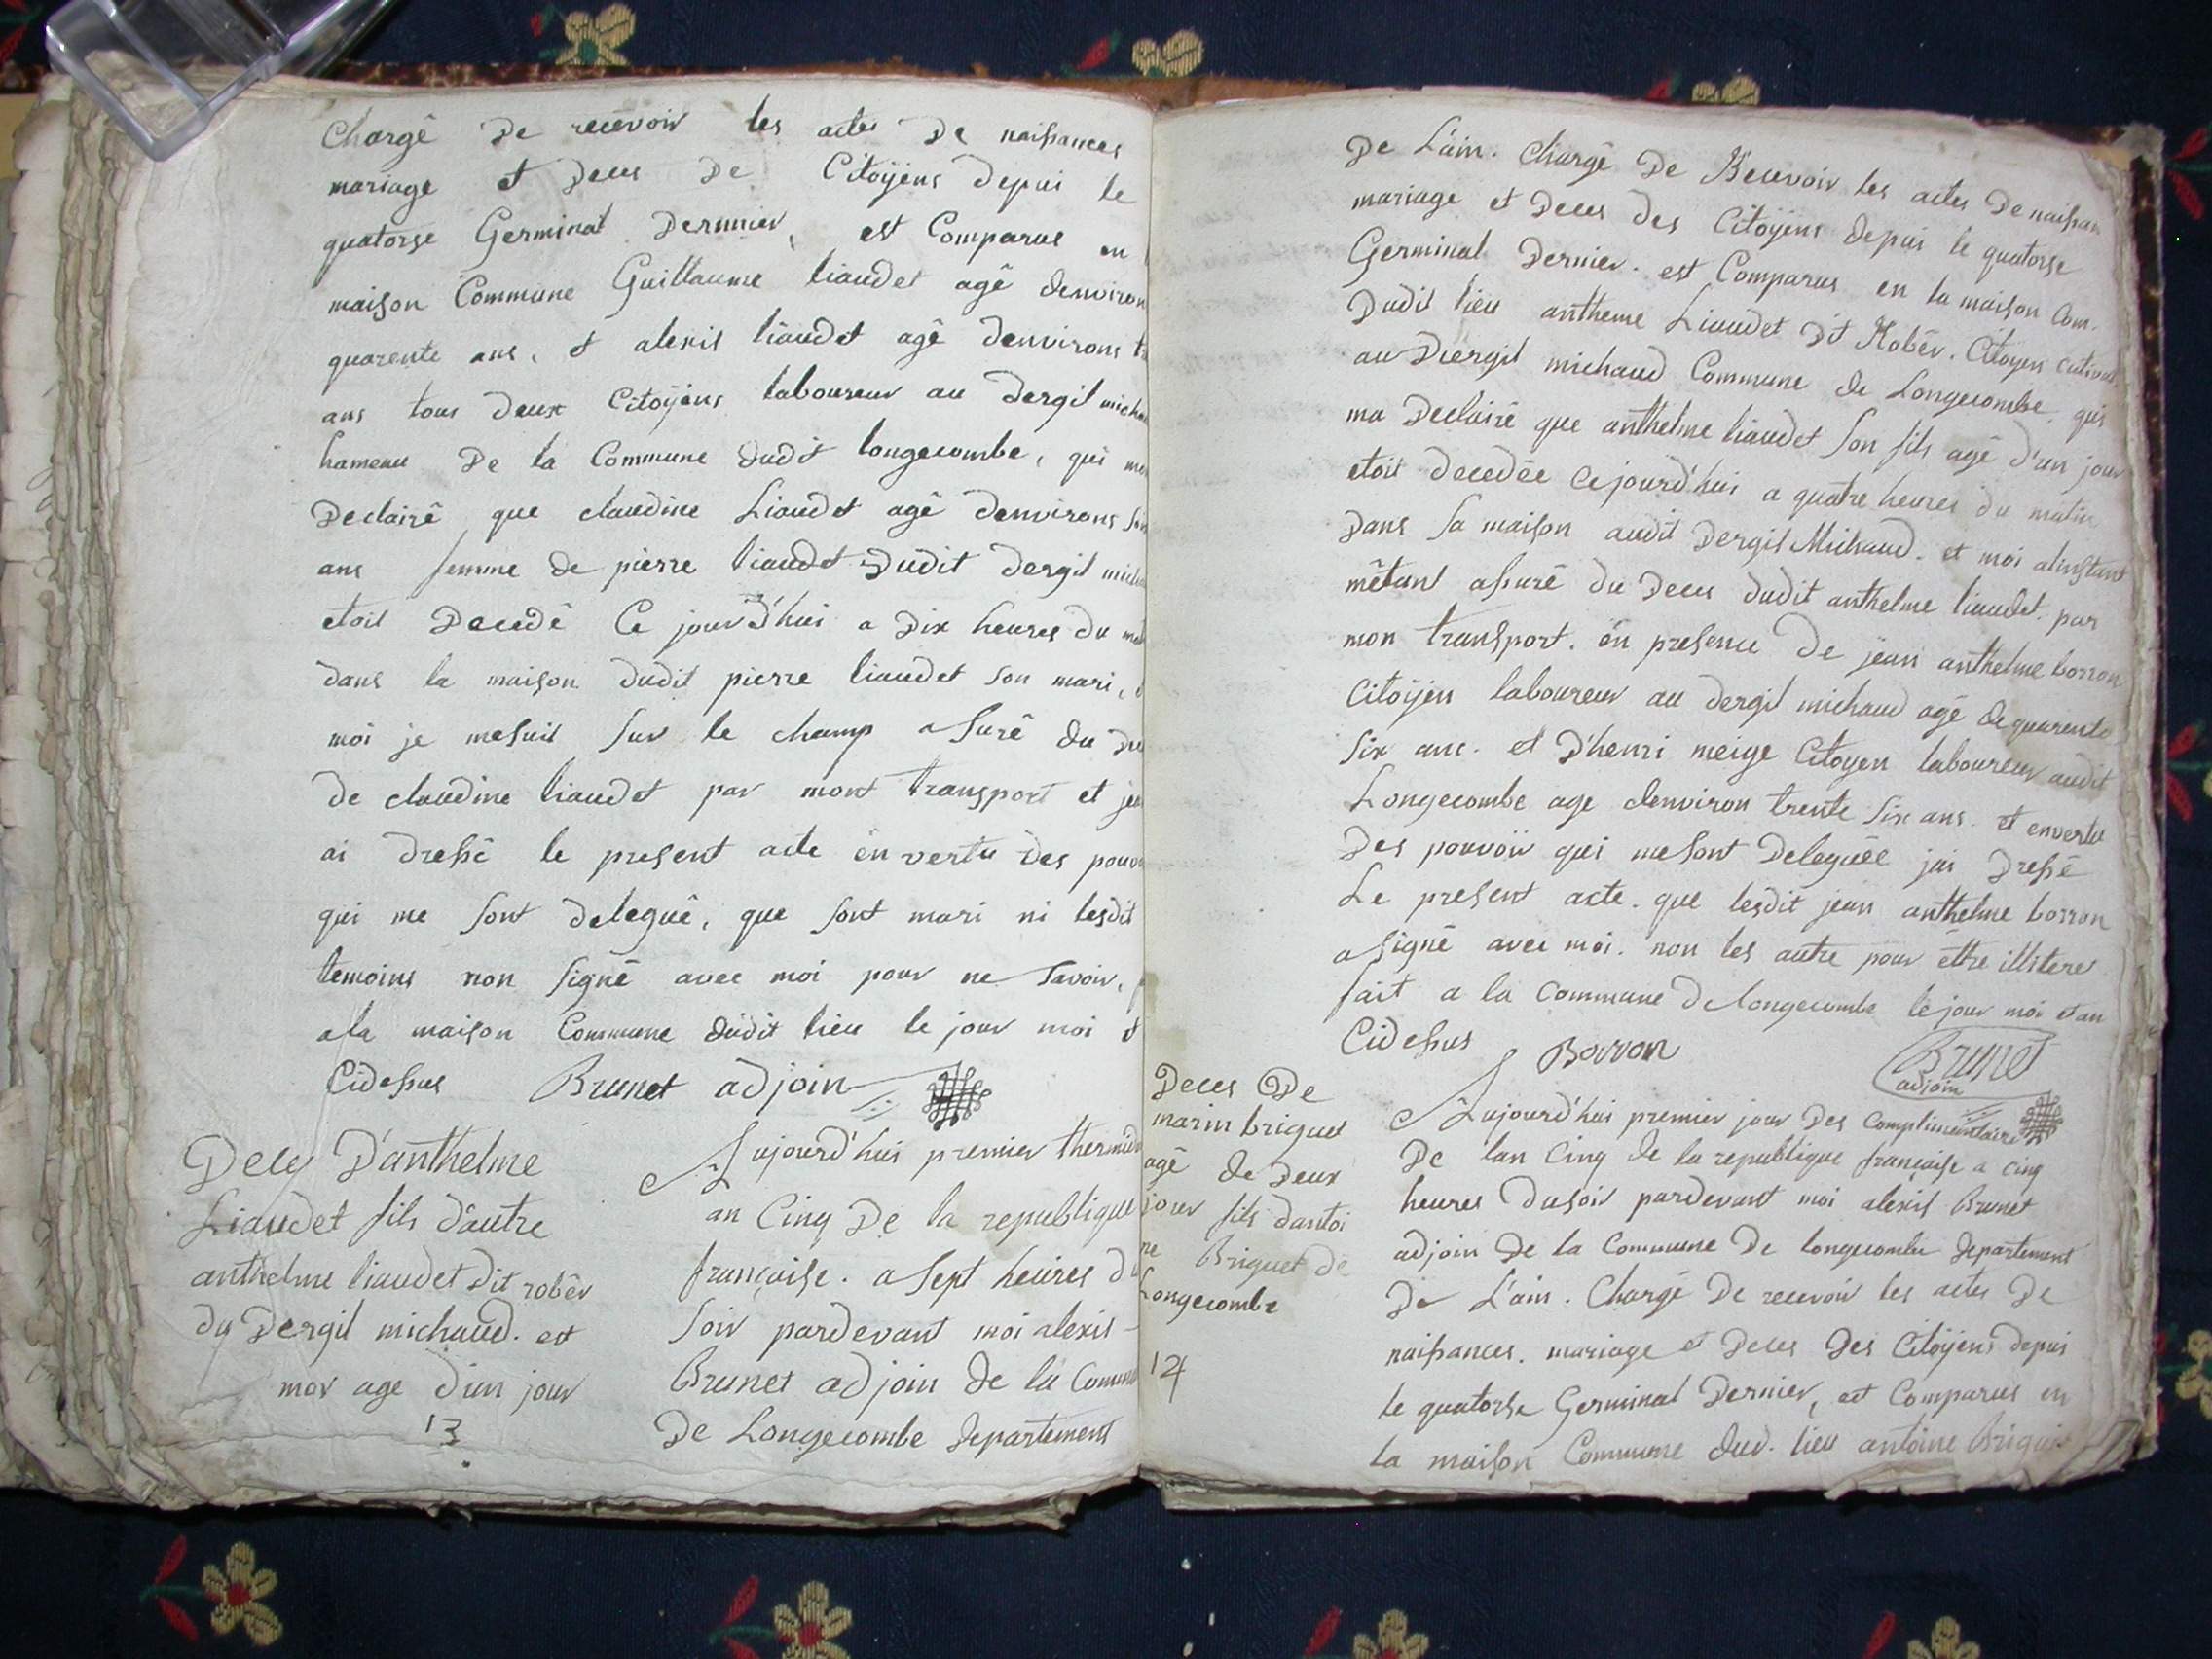 Chargê De recevoir les actes De naissances
mariage et Deces De Citoÿens depui le
quatorse Germinal Dernnier, est Comparus en
maison Commune Guillaume liaudet agê denviron
quarente ans, et alexis liaudet agê denvirons
ans tous deux Citoÿens laboureur au dergil
hameau De la Commune dudit longecombe, qui
Declairê que claudine Liaudet agê denvirons
ans femme de pierre liaudet Dudit dergil
etoit Decedê Ce jourd'hui a Dix heures du
dans la maison dudit pierre liaudet son mari,
moi je mesuis sur le champ assurê du
de claudine liaudet par mont transport et
ai dressê le present acte en vertu des
qui me sont deleguê, que sont mari ni lesdit
temoins non signê avec moi pour ne savoir,
ala maison Commune dudit lieu le jour moi et
Cidessus Brunet adjoin
Deces D'anthelme
Liaudet fils d'autre
anthelme liaudet dit robêr
du Dergil michaud. est
mor age d'un jour
13
Aujourd'hui premier
an Cinq De la republique
française. a sept heures
soir pardevant moi alexis
Brunet adjoin de la
De Longecombe Departement
De L'ain. Chargê De Recevoir les actes De
mariage et Deces des Citoÿens depui le quatorse
Germinal Dernier. est Comparus en la maison Com.
Dudit lieu antheme Liaudet D't Robêr. Citoyen
au Dergil michaud Commune de Longecombe qui
ma Declairê que anthelme liaudet son fils agê d'un jour
etoit decedêe Cejourd'hui a quatre heures du matin
Dans sa maison audit Dergil Michaud. et moi alinstant
mêtant assurê du Deces dudit anthelme liaudet. par
mon transport. en presence De jean anthelme borron
Citoÿen laboureur au dergil michaud agê de quarente
six ans. et D'henri meige Citoyen laboureur audit
Longecombe age denviron trente six ans. et envertu
Des pouvoir qui mesont Deleguêe jai Dressê
Le present acte. que lesdit jean anthelme borron
a signê avec moi. non les autre pour êttre illitere
fait a la Commune De longecombe le jour moi et an
Cidessus Borron Brunet
adjoin
Deces De
marin briguet
agê de Deux
jour fils dantoi
ne Briguet de
Longecombe
14
Aujourd'hui premier jour Des Complimentaire
De lan Cinq de la republique française a cinq
heures dusoir pardevant moi alexis Brunet
adjoin De la Commune De longecombe departement
De L'ain. Chargê De recevoir les actes De
naissances. mariage et Deces Des Citoÿens depui
le quatorse Germinal Dernier, est Comparus en
la maison Commune dud. lieu antoine